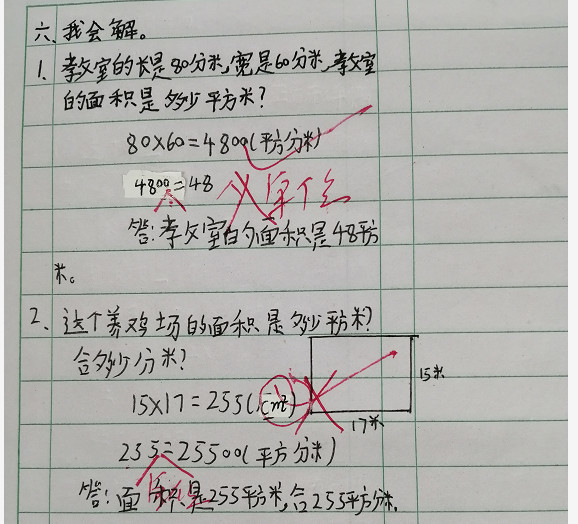 六、我会解。
1、教室的长是80分米,宽是60分米,教室
的面积是多少平方米?
80×60=4800(平方分米)
4800=48
单位
答:教室的面积是48平方
米。
2、这个养鸡场的面积是多少平方米?
合多少分米?
15米
15×17=255(cm²)
17米
255=25500(平方分米)
答:面积是255平方米,合255平方分米.